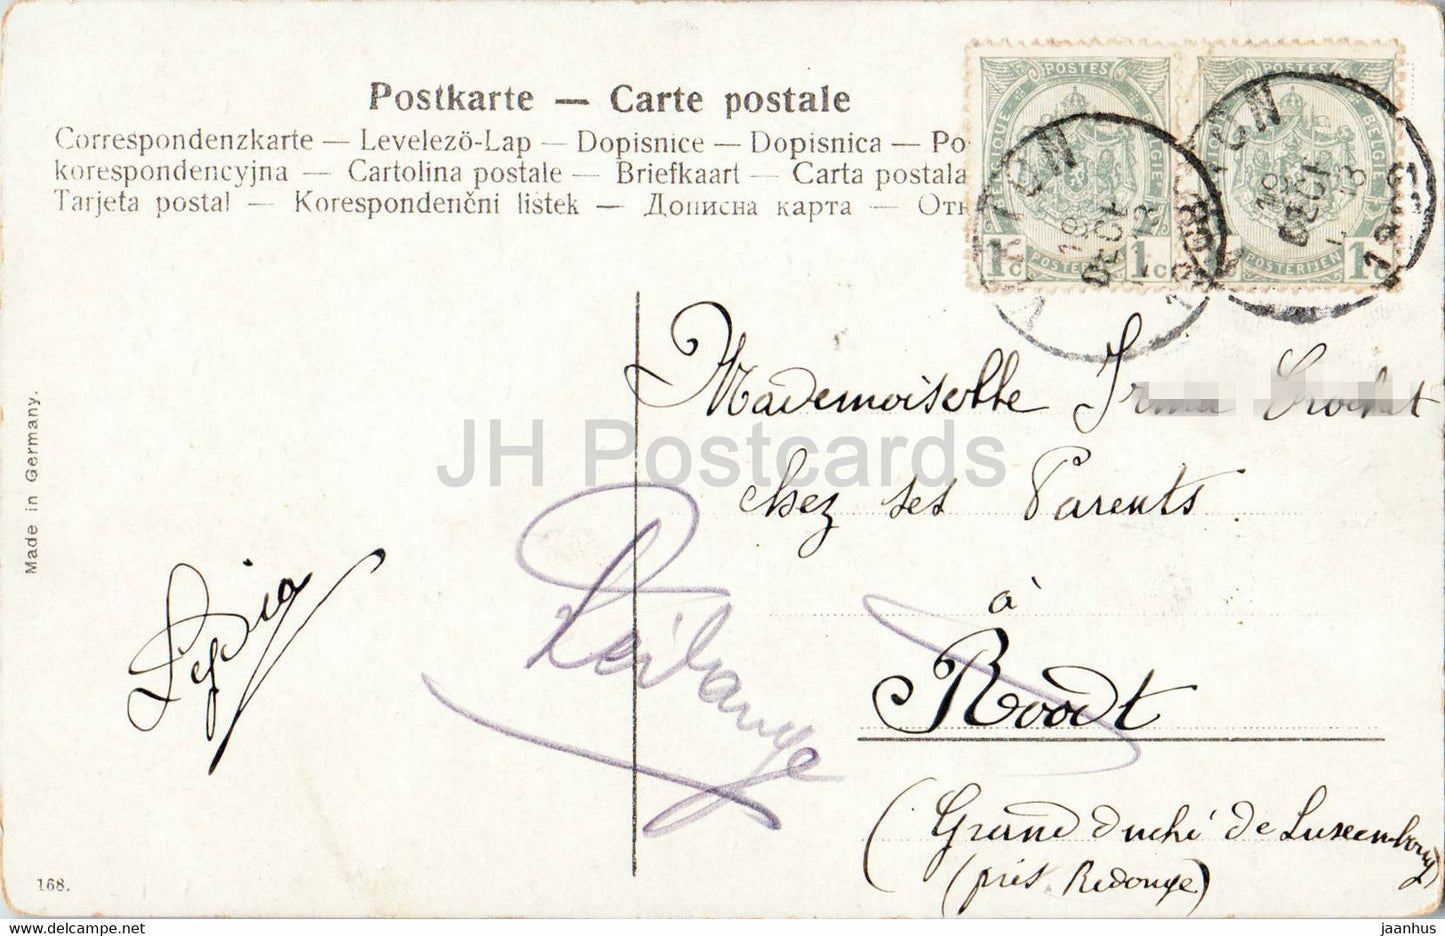 Postkarte — Carte postale
Correspondenzkarte — Levelező-Lap — Dopisnice — Dopisnica — Po-
korespondencyjna — Cartolina postale — Briefkaart — Carta postala
Tarjeta postal — Korespondenčni listek — Дописна карта — Отк
POSTES
BELGIQUE
1c 1c
POSTERIJEN
POSTES
BELGIË
1c
POSTERIJEN
18 DECE 13
1908
18 DECE 13
1908
Mademoiselle
Chez ses Parents
à
Roodt
(Grand Duché de Luxembourg)
(près Redange)
Redange
JH Postcards
Made in Germany.
168.
www.delcampe.net
jaanhus